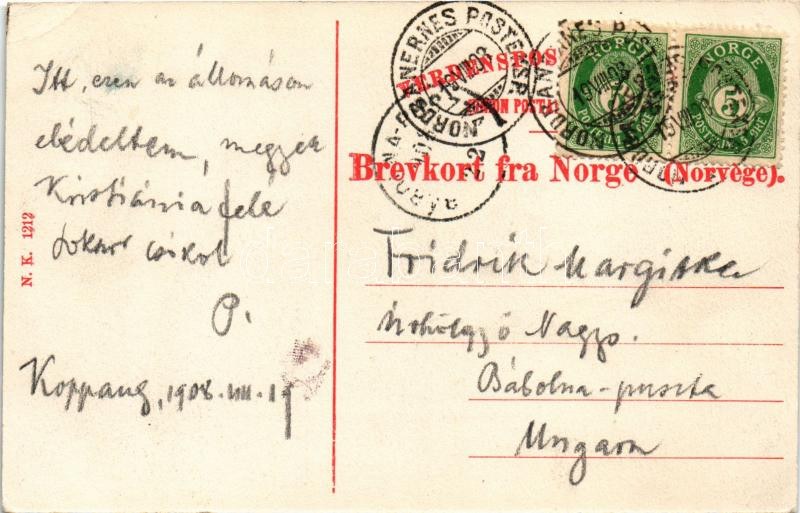 Itt, ezen az állomáson
ebédeltem, megyek
Kristiánia felé
sokat csókol
P.
Koppang, 1908. VIII. 19
N. K. 1212
VERDENSPOST
UNION POSTALE
Brevkort fra Norge (Norvège).
NORGE
5
POSTFRIM ØRE
NORGE
5
POSTFRIM ØRE
19 VIII 08
BÁBOLNA
Fridrik Margitka
Úrhölgyő Nagys.
Bábolna-puszta
Ungarn